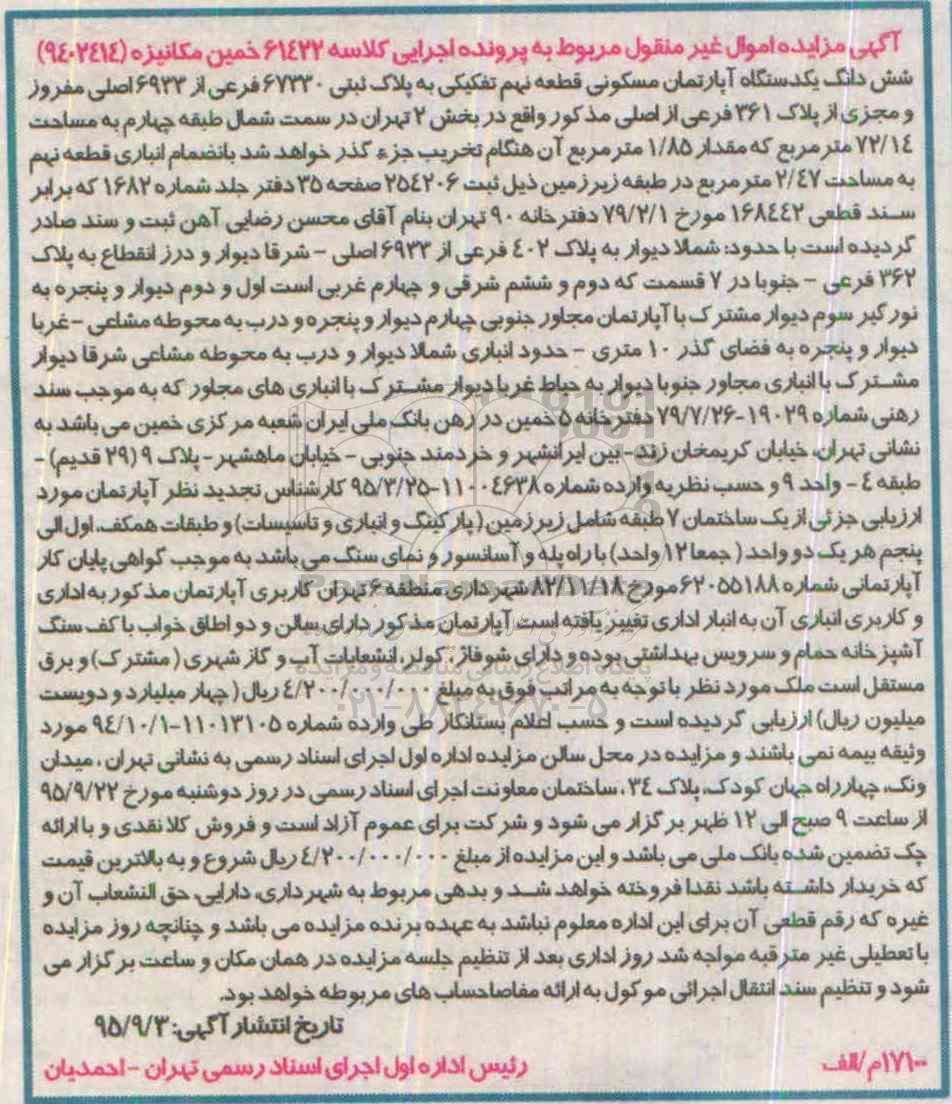 آگهی مزایده اموال غیر منقول مربوط به پرونده اجرایی کلاسه ۶۱۴۲۲ خمین مکانیزه (۹۴۰۲۴۱۴)
شش دانگ یکدستگاه آپارتمان مسکونی قطعه نهم تفکیکی به پلاک ثبتی ۶۷۳۳۰ فرعی از ۶۹۳۳ اصلی مفروز
و مجزی از پلاک ۳۶۱ فرعی از اصلی مذکور واقع در بخش ۲ تهران در سمت شمال طبقه چهارم به مساحت
۷۲/۱۴ متر مربع که مقدار ۱/۸۵ متر مربع آن هنگام تخریب جزء گذر خواهد شد بانضمام انباری قطعه نهم
به مساحت ۲/۴۷ متر مربع در طبقه زیرزمین ذیل ثبت ۲۵۴۲۰۶ صفحه ۳۵ دفتر جلد شماره ۱۶۸۲ که برابر
سند قطعی ۱۶۸۴۴۲ مورخ ۷۹/۲/۱ دفترخانه ۹۰ تهران بنام آقای محسن رضایی آهن ثبت و سند صادر
گردیده است با حدود: شمالا دیوار به پلاک ۴۰۲ فرعی از ۶۹۳۳ اصلی - شرقا دیوار و درز انقطاع به پلاک
۳۶۲ فرعی - جنوبا در ۷ قسمت که دوم و ششم شرقی و چهارم غربی است اول و دوم دیوار و پنجره به
نورگیر سوم دیوار مشترک با آپارتمان مجاور جنوبی چهارم دیوار و پنجره و درب به محوطه مشاعی - غربا
دیوار و پنجره به فضای گذر ۱۰ متری - حدود انباری شمالا دیوار و درب به محوطه مشاعی شرقا دیوار
مشترک با انباری مجاور جنوبا دیوار به حیاط غربا دیوار مشترک با انباری های مجاور که به موجب سند
رهنی شماره ۱۹۰۲۹-۷۹/۷/۲۶ دفترخانه ۵ خمین در رهن بانک ملی ایران شعبه مرکزی خمین می باشد به
نشانی تهران، خیابان کریمخان زند - بین ایرانشهر و خردمند جنوبی - خیابان ماهشهر - پلاک ۹ (۲۹ قدیم) -
طبقه ۴ - واحد ۹ و حسب نظریه وارده شماره ۱۱۰۰۴۶۳۸-۹۵/۳/۲۵ کارشناس تجدید نظر آپارتمان مورد
ارزیابی جزئی از یک ساختمان ۷ طبقه شامل زیرزمین (پارکینگ و انباری و تاسیسات) و طبقات همکف، اول الی
پنجم هر یک دو واحد (جمعا ۱۲ واحد) با راه پله و آسانسور و نمای سنگ می باشد به موجب گواهی پایان کار
آپارتمانی شماره ۶۲۰۵۵۱۸۸ مورخ ۸۲/۱۱/۱۸ شهرداری منطقه ۶ تهران کاربری آپارتمان مذکور به اداری
و کاربری انباری آن به انبار اداری تغییر یافته است آپارتمان مذکور دارای سالن و دو اطاق خواب با کف سنگ
آشپزخانه حمام و سرویس بهداشتی بوده و دارای شوفاژ، کولر، انشعابات آب و گاز شهری (مشترک) و برق
مستقل است ملک مورد نظر با توجه به مراتب فوق به مبلغ ۴/۲۰۰/۰۰۰/۰۰۰ ریال (چهار میلیارد و دویست
میلیون ریال) ارزیابی گردیده است و حسب اعلام بستانکار طی وارده شماره ۱۱۰۱۳۱۰۵-۹۴/۱۰/۱ مورد
وثیقه بیمه نمی باشند و مزایده در محل سالن مزایده اداره اول اجرای اسناد رسمی به نشانی تهران، میدان
ونک، چهارراه جهان کودک، پلاک ۳۴، ساختمان معاونت اجرای اسناد رسمی در روز دوشنبه مورخ ۹۵/۹/۲۲
از ساعت ۹ صبح الی ۱۲ ظهر برگزار می شود و شرکت برای عموم آزاد است و فروش کلا نقدی و با ارائه
چک تضمین شده بانک ملی می باشد و این مزایده از مبلغ ۴/۲۰۰/۰۰۰/۰۰۰ ریال شروع و به بالاترین قیمت
که خریدار داشته باشد نقدا فروخته خواهد شد و بدهی مربوط به شهرداری، دارایی، حق النشعاب آن و
غیره که رقم قطعی آن برای این اداره معلوم نباشد به عهده برنده مزایده می باشد و چنانچه روز مزایده
با تعطیلی غیر مترقبه مواجه شد روز اداری بعد از تنظیم جلسه مزایده در همان مکان و ساعت برگزار می
شود و تنظیم سند انتقال اجرائی موکول به ارائه مفاصاحساب های مربوطه خواهد بود.
تاریخ انتشار آگهی: ۹۵/۹/۳
۱۷۱۰۰/م الف
رئیس اداره اول اجرای اسناد رسمی تهران - احمدیان
۰۲۱-۸۸۳۴۹۶۷۰-۵